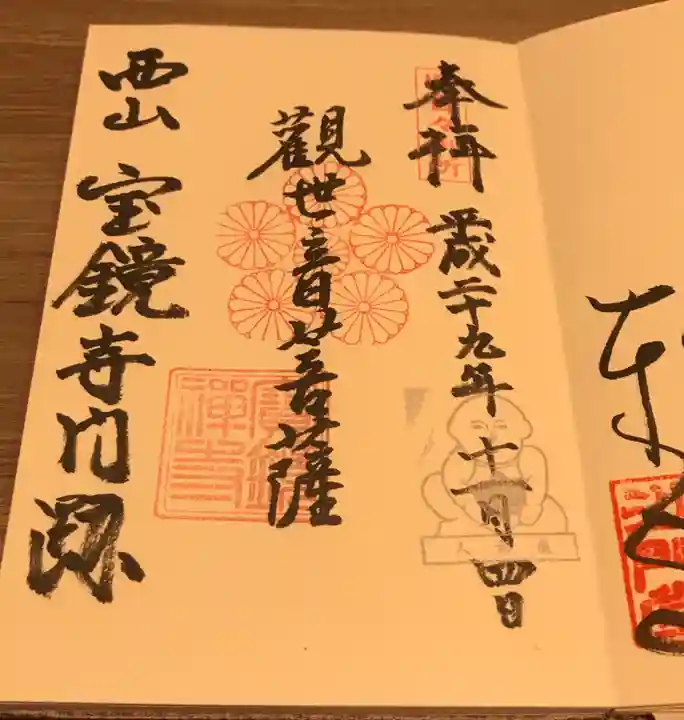 奉拝
平成二十九年十一月四日
觀世音菩薩
西山
宝鏡寺门跡
人形展